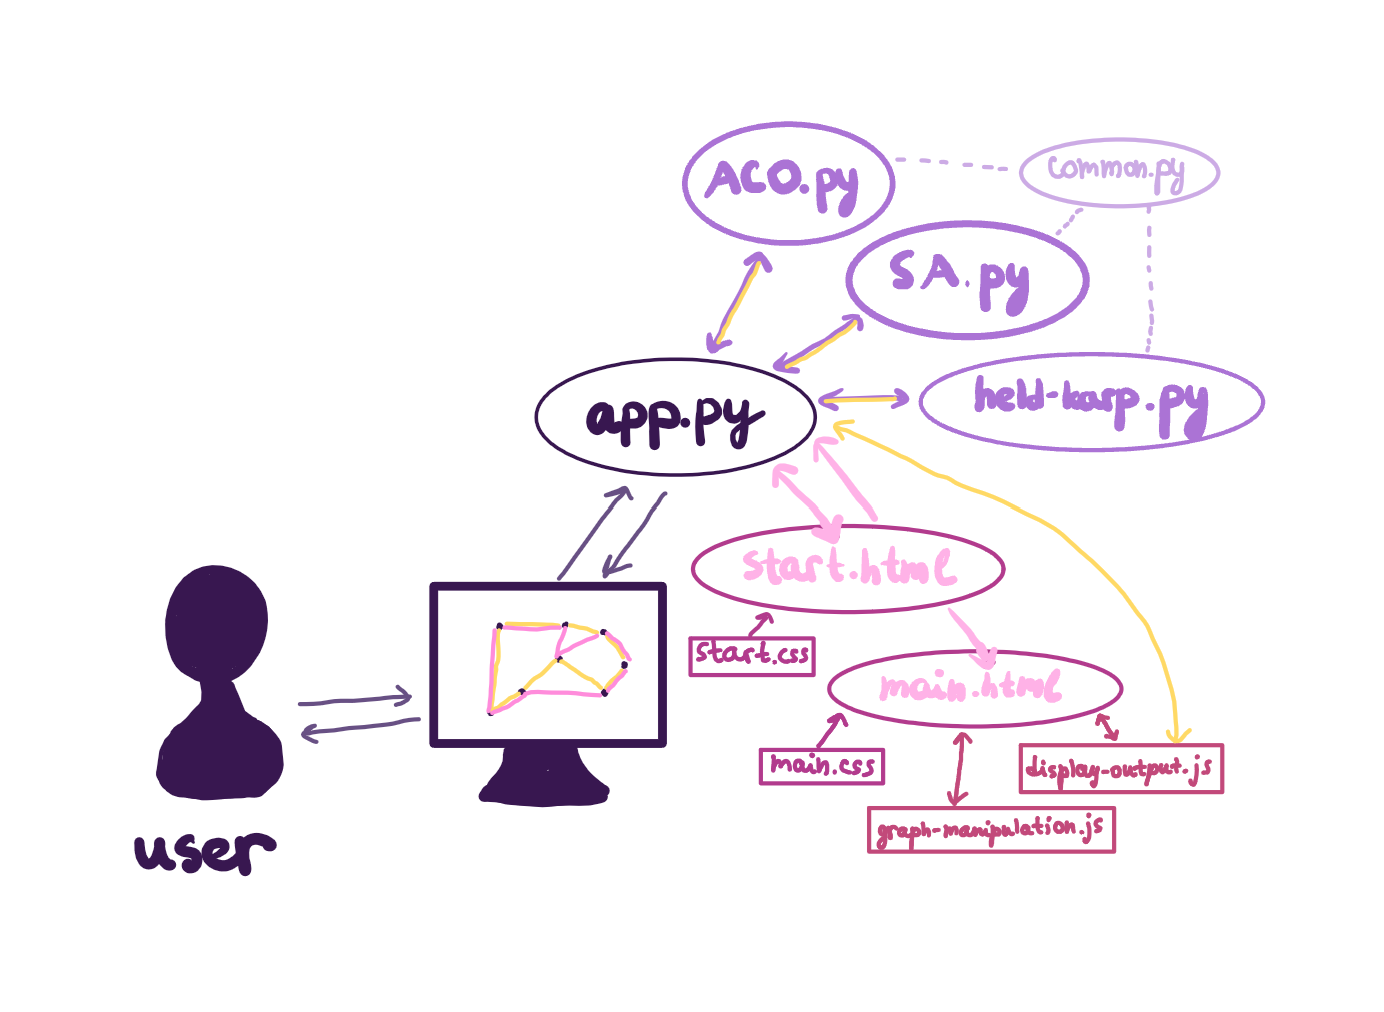 ACO.py
common.py
SA.py
held-karp.py
app.py
start.html
start.css
main.html
main.css
display-output.js
graph-manipulation.js
user